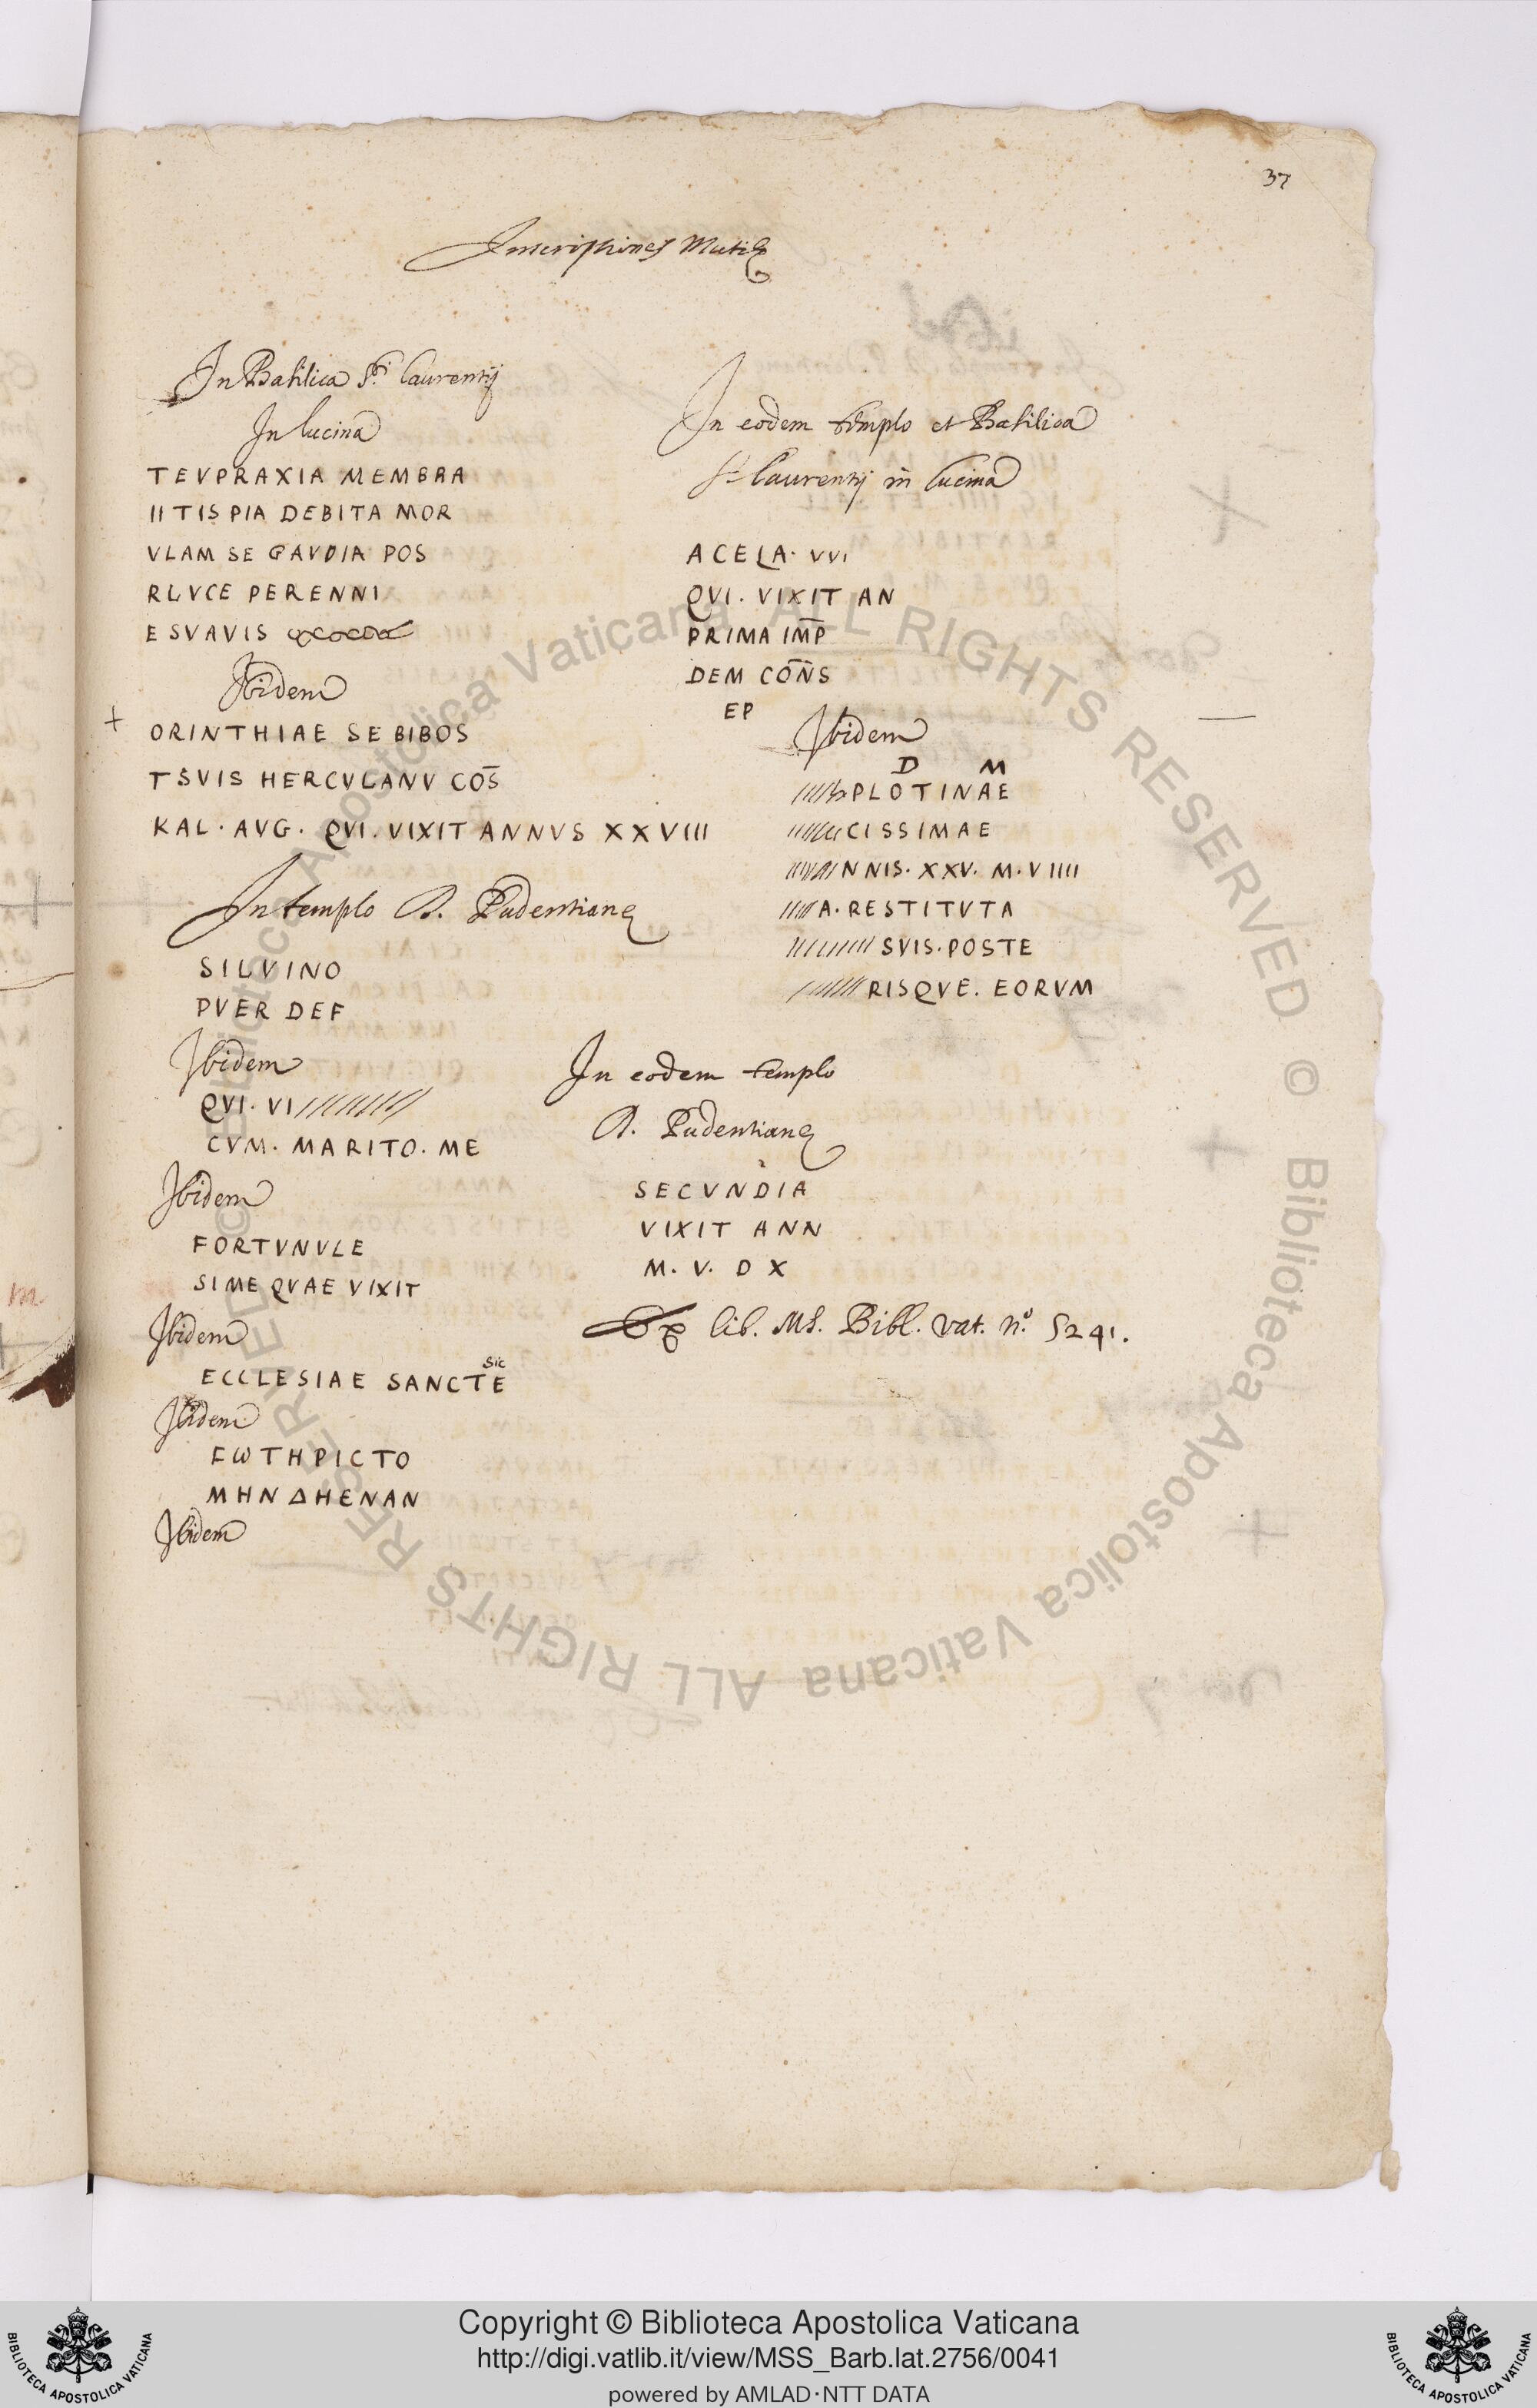 37
Inscriptiones Mutilę
In Basilica S.ti Laurentij
In Lucina
TEVPRAXIA MEMBRA
IITIS PIA DEBITA MOR
VLAM SE GAVDIA POS
RLVCE PERENNI
E SVAVIS
Ibidem
+ ORINTHIAE SE BIBOS
TSVIS HERCVLANV COS̅
KAL · AVG · QVI · VIXIT ANNVS XXVIII
In templo B. Pudentianę
SILVINO
PVER DEF
Ibidem
QVI · VI/////////
CVM · MARITO · ME
Ibidem
FORTVNVLE
SIME QVAE VIXIT
Ibidem
sic
ECCLESIAE SANCTE
Ibidem
FωTHPICTO
MHNΔHENAN
Ibidem
In eodem templo et Basilica
S.ti Laurentij in Lucina
ACELA · VVI
QVI · VIXIT AN
PRIMA IM̅P̅
DEM CO̅N̅S
EP
Ibidem
D M
/////PLOTINAE
/////CISSIMAE
/////NNIS · XXV · M · VIIII
////A · RESTITVTA
/////// SVIS · POSTE
//////RISQVE · EORVM
In eodem templo
B. Pudentianę
SECVNDIA
VIXIT ANN
M · V · D X
Ex lib. MS. Bibl. Vat. n.º 5241.
Copyright © Biblioteca Apostolica Vaticana
http://digi.vatlib.it/view/MSS_Barb.lat.2756/0041
powered by AMLAD·NTT DATA
BIBLIOTECA APOSTOLICA VATICANA
BIBLIOTECA APOSTOLICA VATICANA
© Biblioteca Apostolica Vaticana ALL RIGHTS RESERVED
© Biblioteca Apostolica Vaticana ALL RIGHTS RESERVED